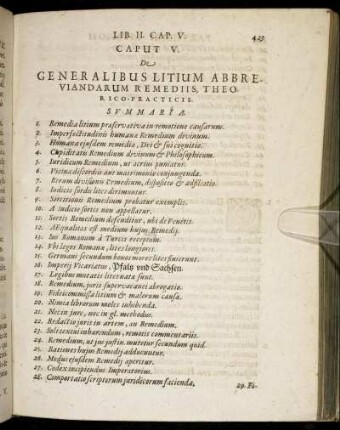 LIB. II. CAP. V.
CAPUT V.
De
GENERALIBUS LITIUM ABBRE-
VIANDARUM REMEDIIS, THEO-
RICO-PRACTICIS.
SVMMARIA.
1. Remedia litium præservativa in remotione causarum.
2. Imperfectitudinis humanæ Remedium divinum.
3. Humana ejusdem remedia, Dei & sui cognitio.
4. Cupiditatis Remedium divinum & Philosophicum.
5. Iuridicum Remedium, ut acrius puniatur.
6. Victna discordia aut matrimonio conjungenda.
7. Rerum divisionis Remedium, dispositio &
8. Iudicio sorde lites dirimuntur.
9. Sortitionis Remedium probatur exemplis.
10. A judicio sortis non appellatur.
11. Sortis Remedium defenditur, ubi de Venetis.
12. Æqualitas est medium hujus Remedij.
13. Ius Romanum à Turcis receptum.
14. Vbi leges Romanæ, lites longiores.
15. Germani secundum bonos mores lites finierunt.
16. Imperij Vicariatus, Pfaltz und Sachsen.
17. Legibus mutatis lites natæ sunt.
18. Remedium, juris supervacanei abrogatio.
19. Fideicommissa litium & malorum causa.
20. Nimia librorum moles inhibenda.
21. Nec in jure, nec in gl. methodus.
22. Redactio juris in artem, an Remedium.
23. Soli textui inhærendum, remotis commentariis.
24. Remedium, ut jus Justin. mutetur secundum quid.
25. Rationes hujus Remedij adducuntur.
26. Modus ejusdem Remedij aperitur.
27. Codex incipiendus Imperatorius.
28. Comportatio scriptorum juridicorum facienda.
29. Fi-